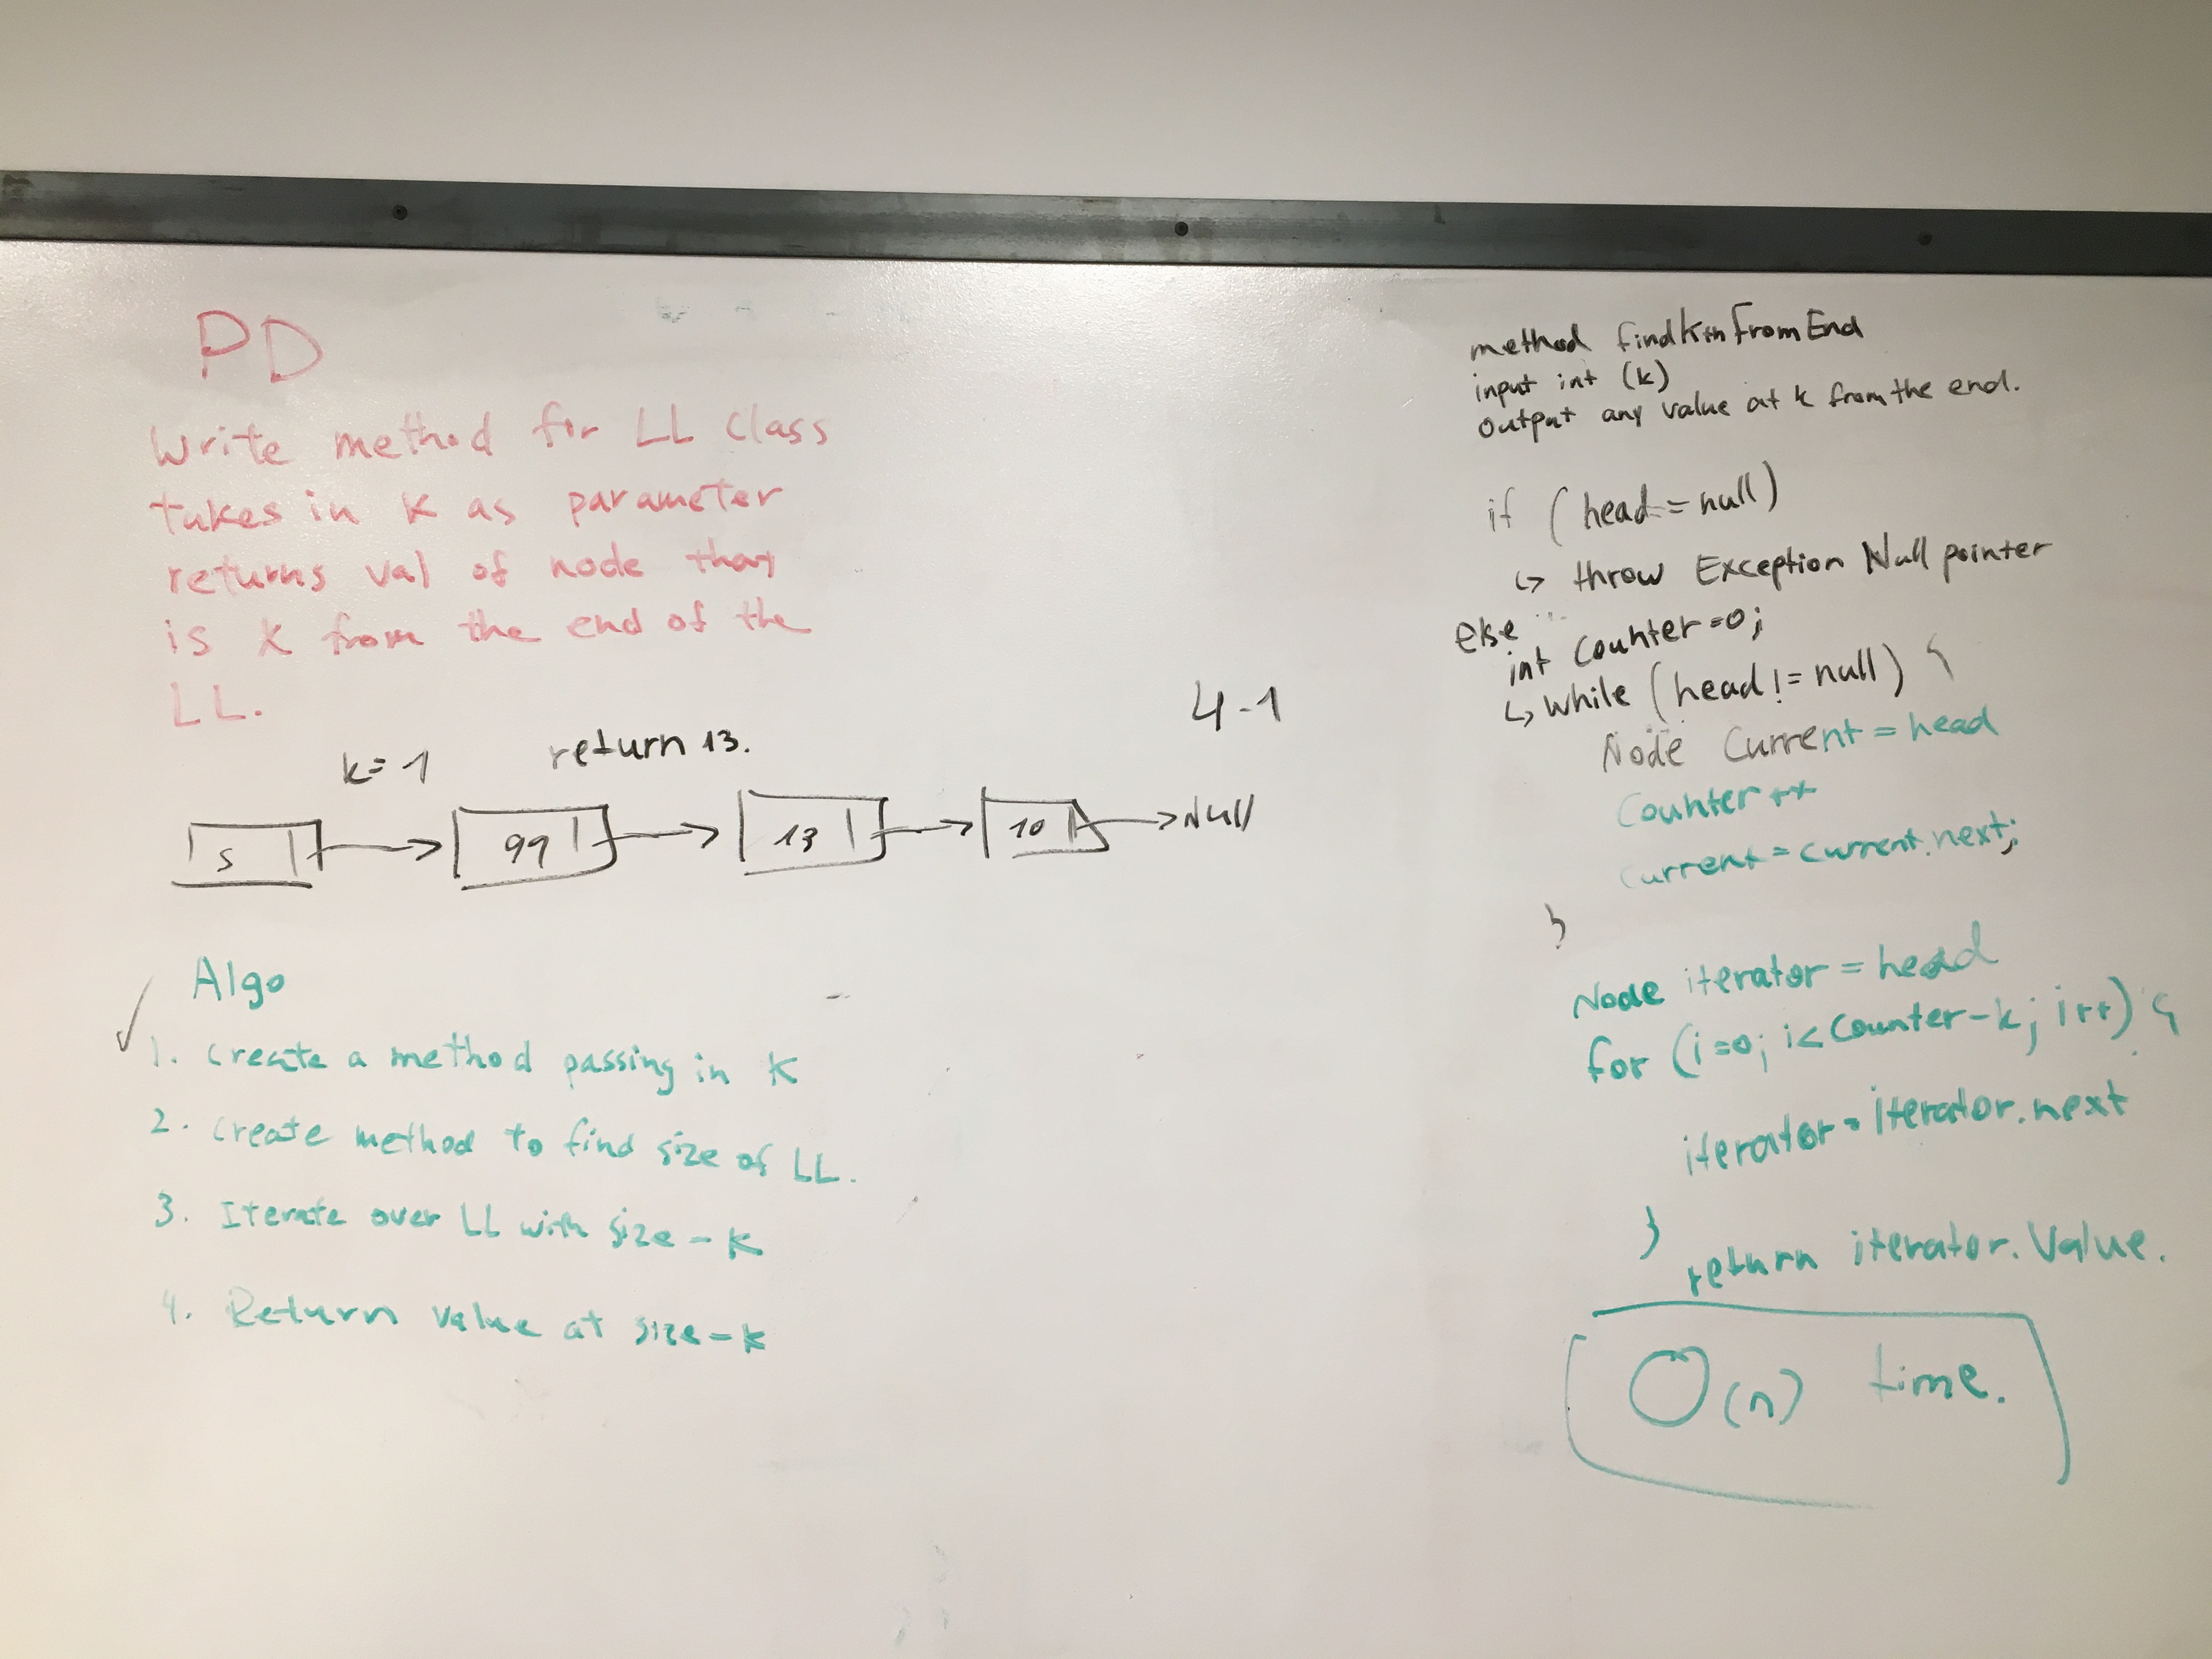 PD
Write method for LL class
takes in K as parameter
returns val of node that
is K from the end of the
LL.
k=1
return 13.
4-1
5
99
13
10
Null
Algo
1. Create a method passing in K
2. Create method to find size of LL.
3. Iterate over LL with size - K
4. Return value at size - k
method findKthFromEnd
input int (k)
output any value at k from the end.
if (head == null)
↳ throw Exception Null pointer
else
int counter=0;
↳ while (head != null) {
Node Current = head
Counter++
Current = current.next;
}
Node iterator = head
for (i=0; i< Counter-k; i++) {
iterator = iterator.next
}
return iterator.Value.
O(n) time.